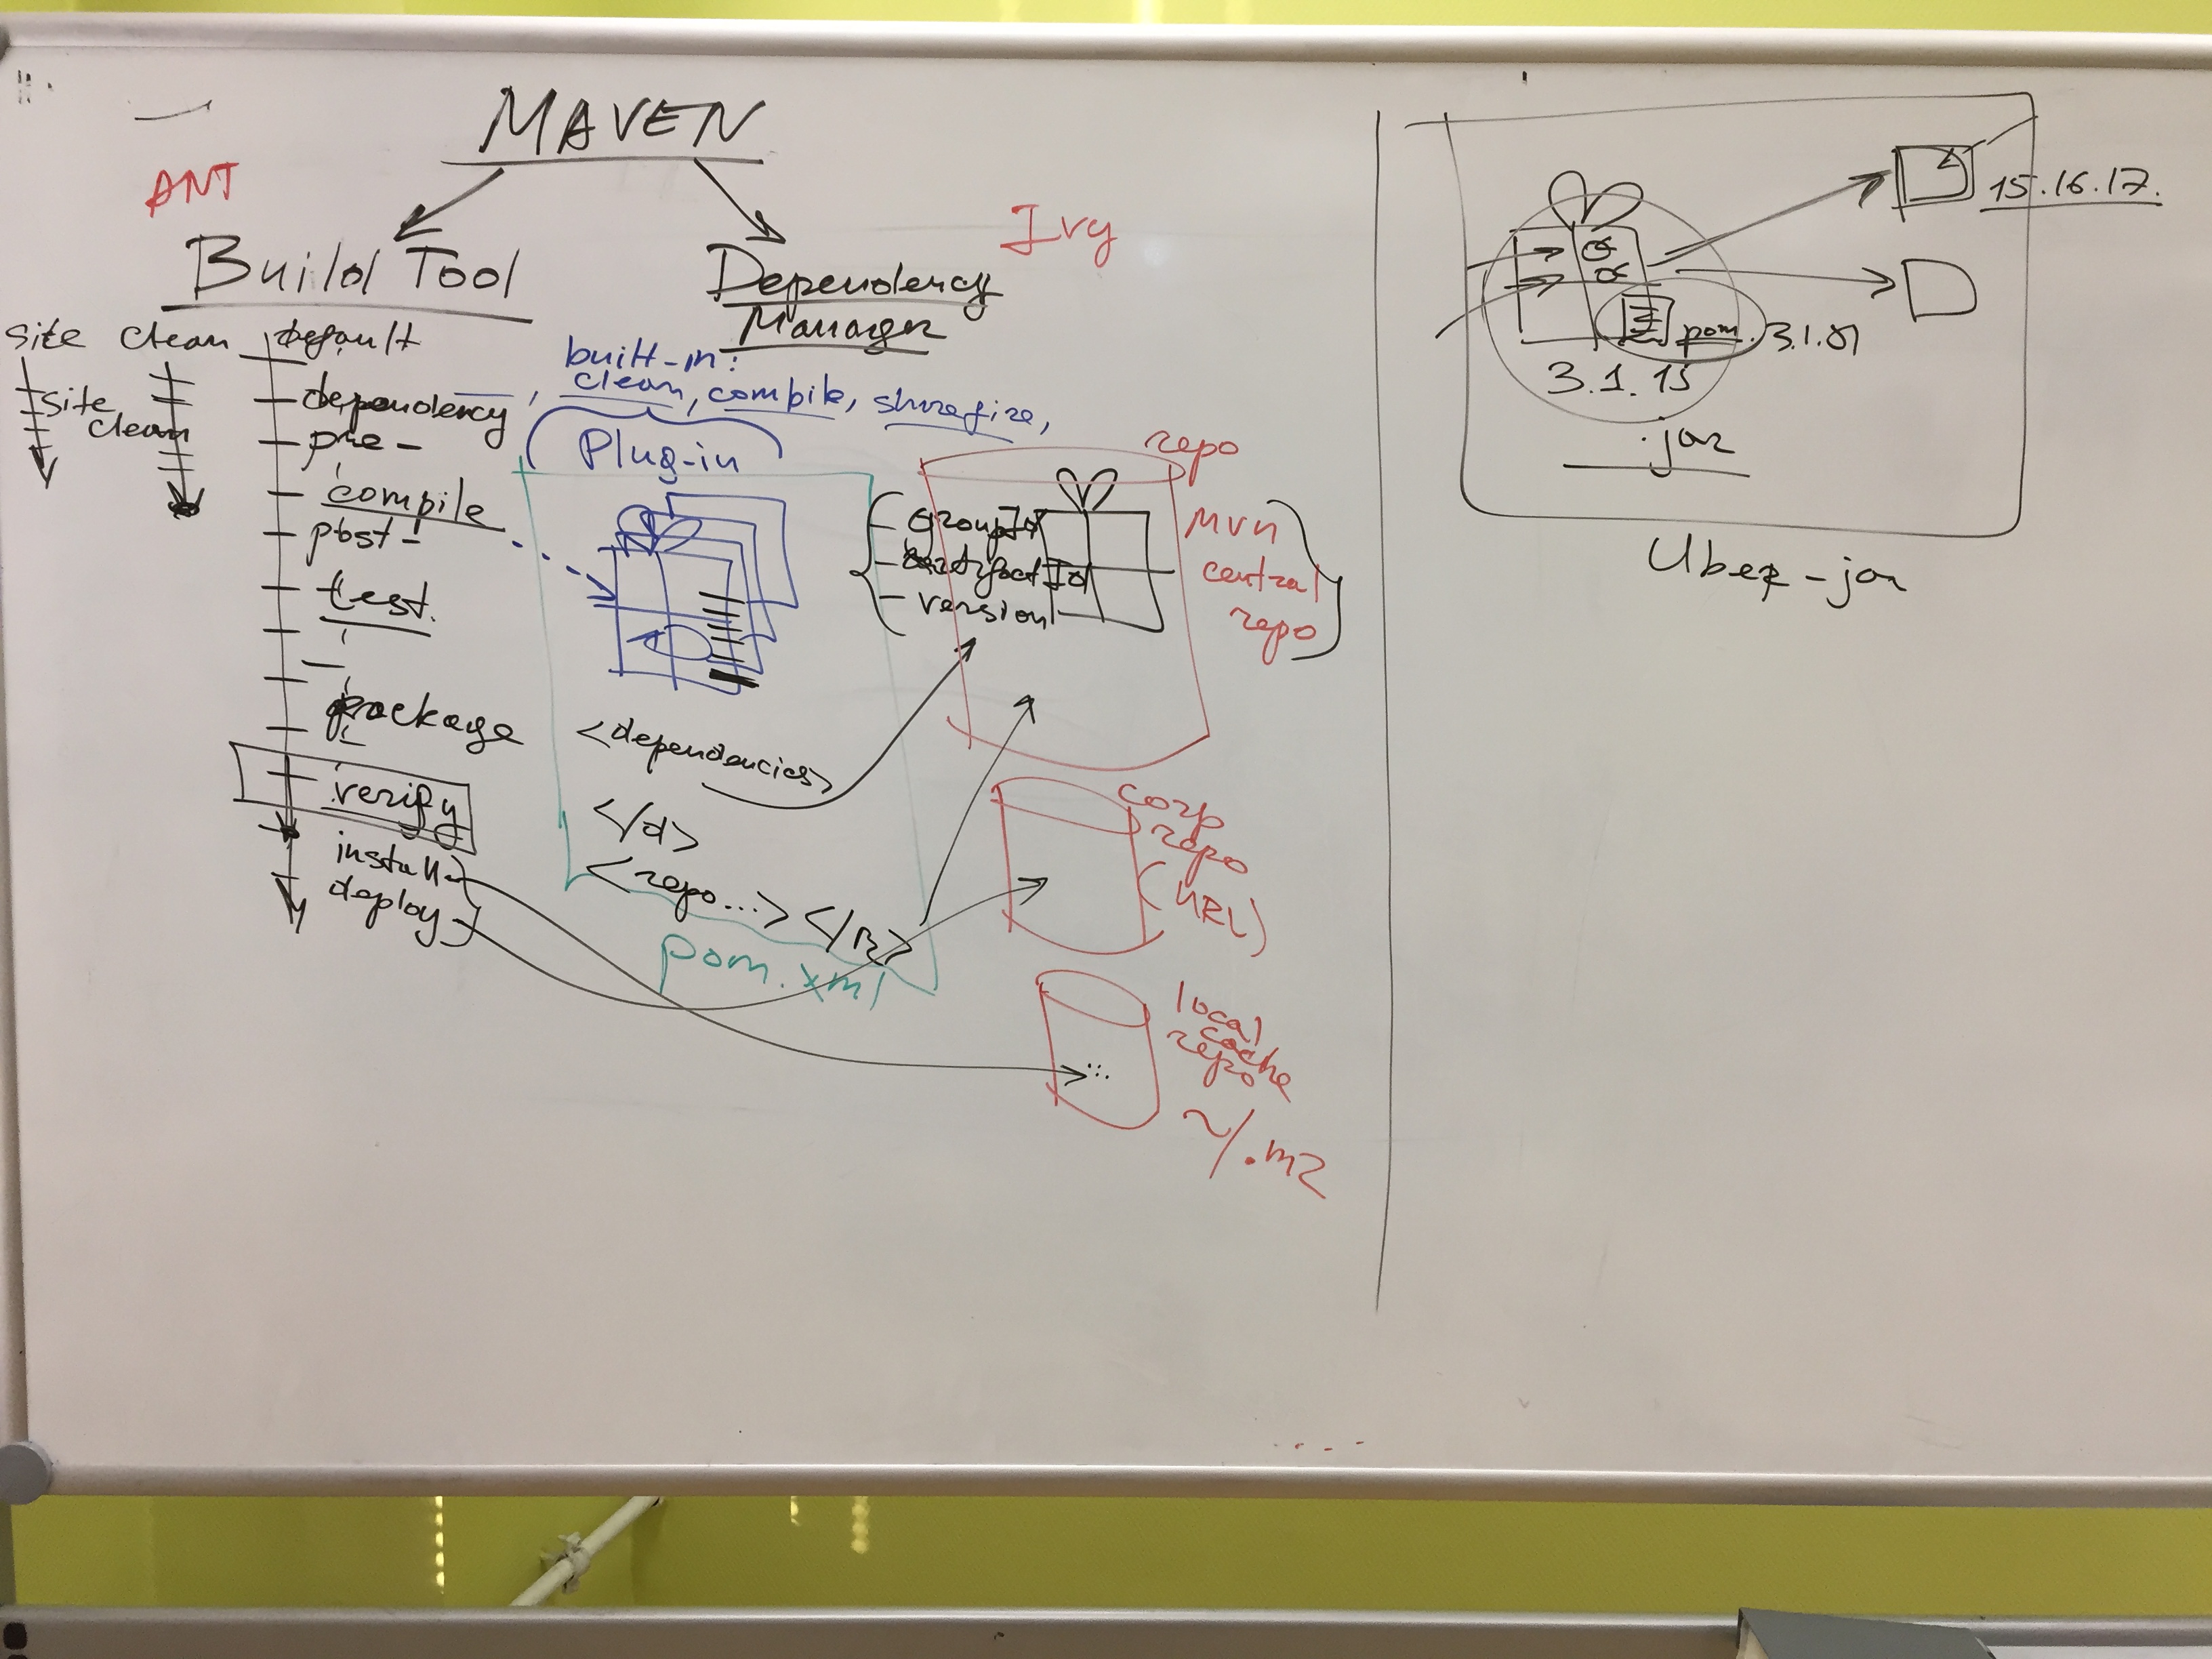 MAVEN
ANT
Ivy
Build Tool
Dependency
Manager
site
clean
default
site
clean
dependency
pre -
compile
post -
test.
package
verify
install
deploy
built-in:
clean, compile, shurefire,
Plug-in
<dependencies>
</d>
<repo...> </R>
pom.xml
repo
- groupId
- artifactId
- version
mvn
central
repo
corp
repo
(URL)
local
cache
repo
~/.m2
15.16.17.
pom. 3.1.01
3.1.15
.jar
Uber-jar